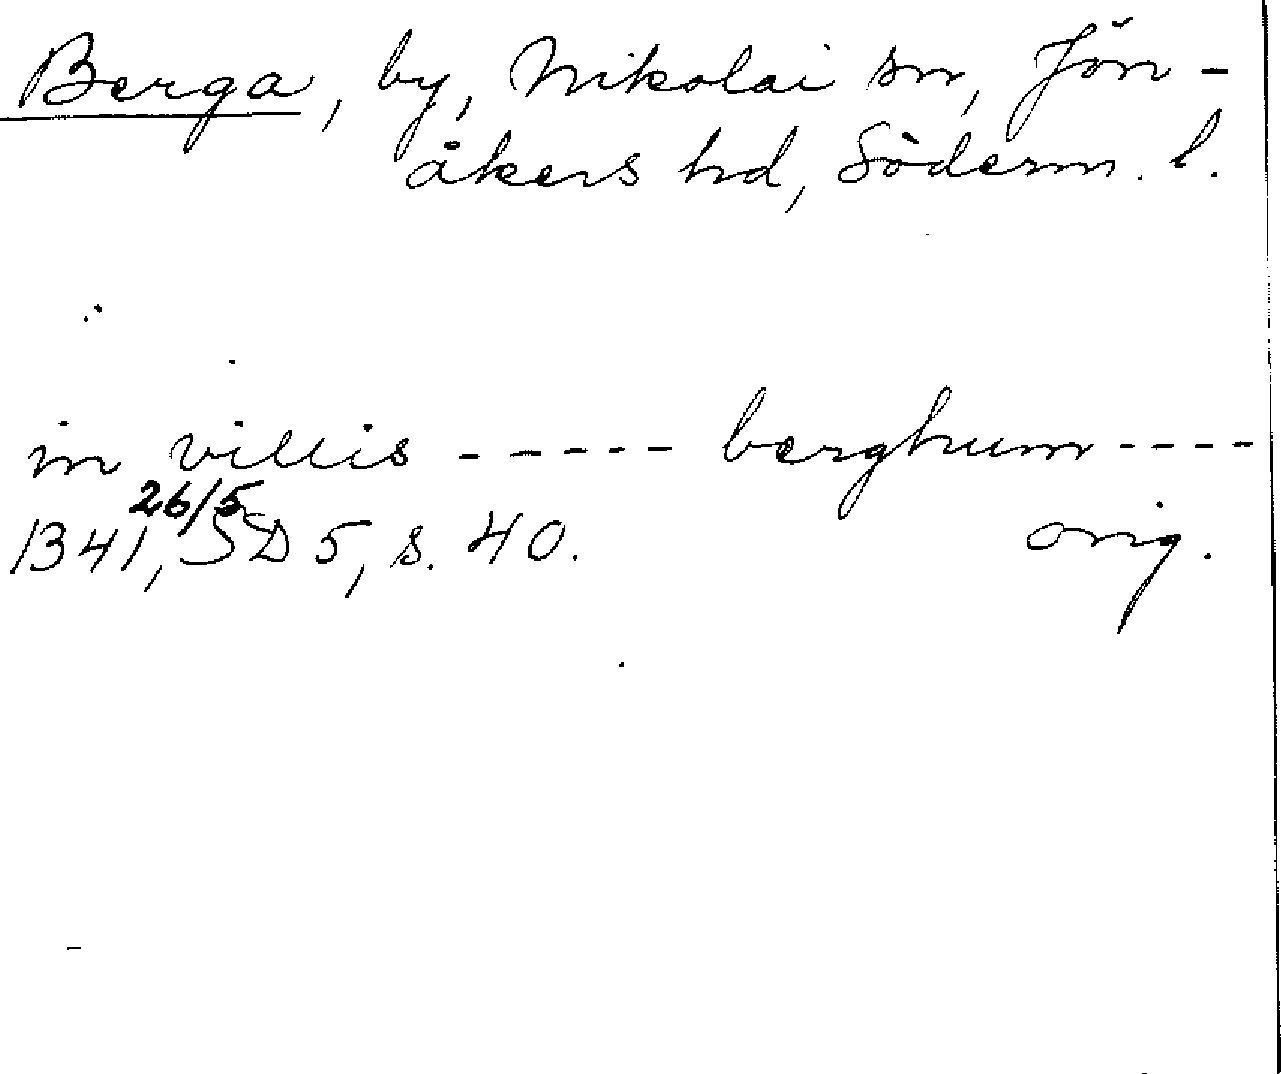 Berga, by, Nikolai sn, Jön-
åkers hd, Söderm. l.
in villis ----- berghum ----
26/5
1341, SD 5, s. 40. orig.